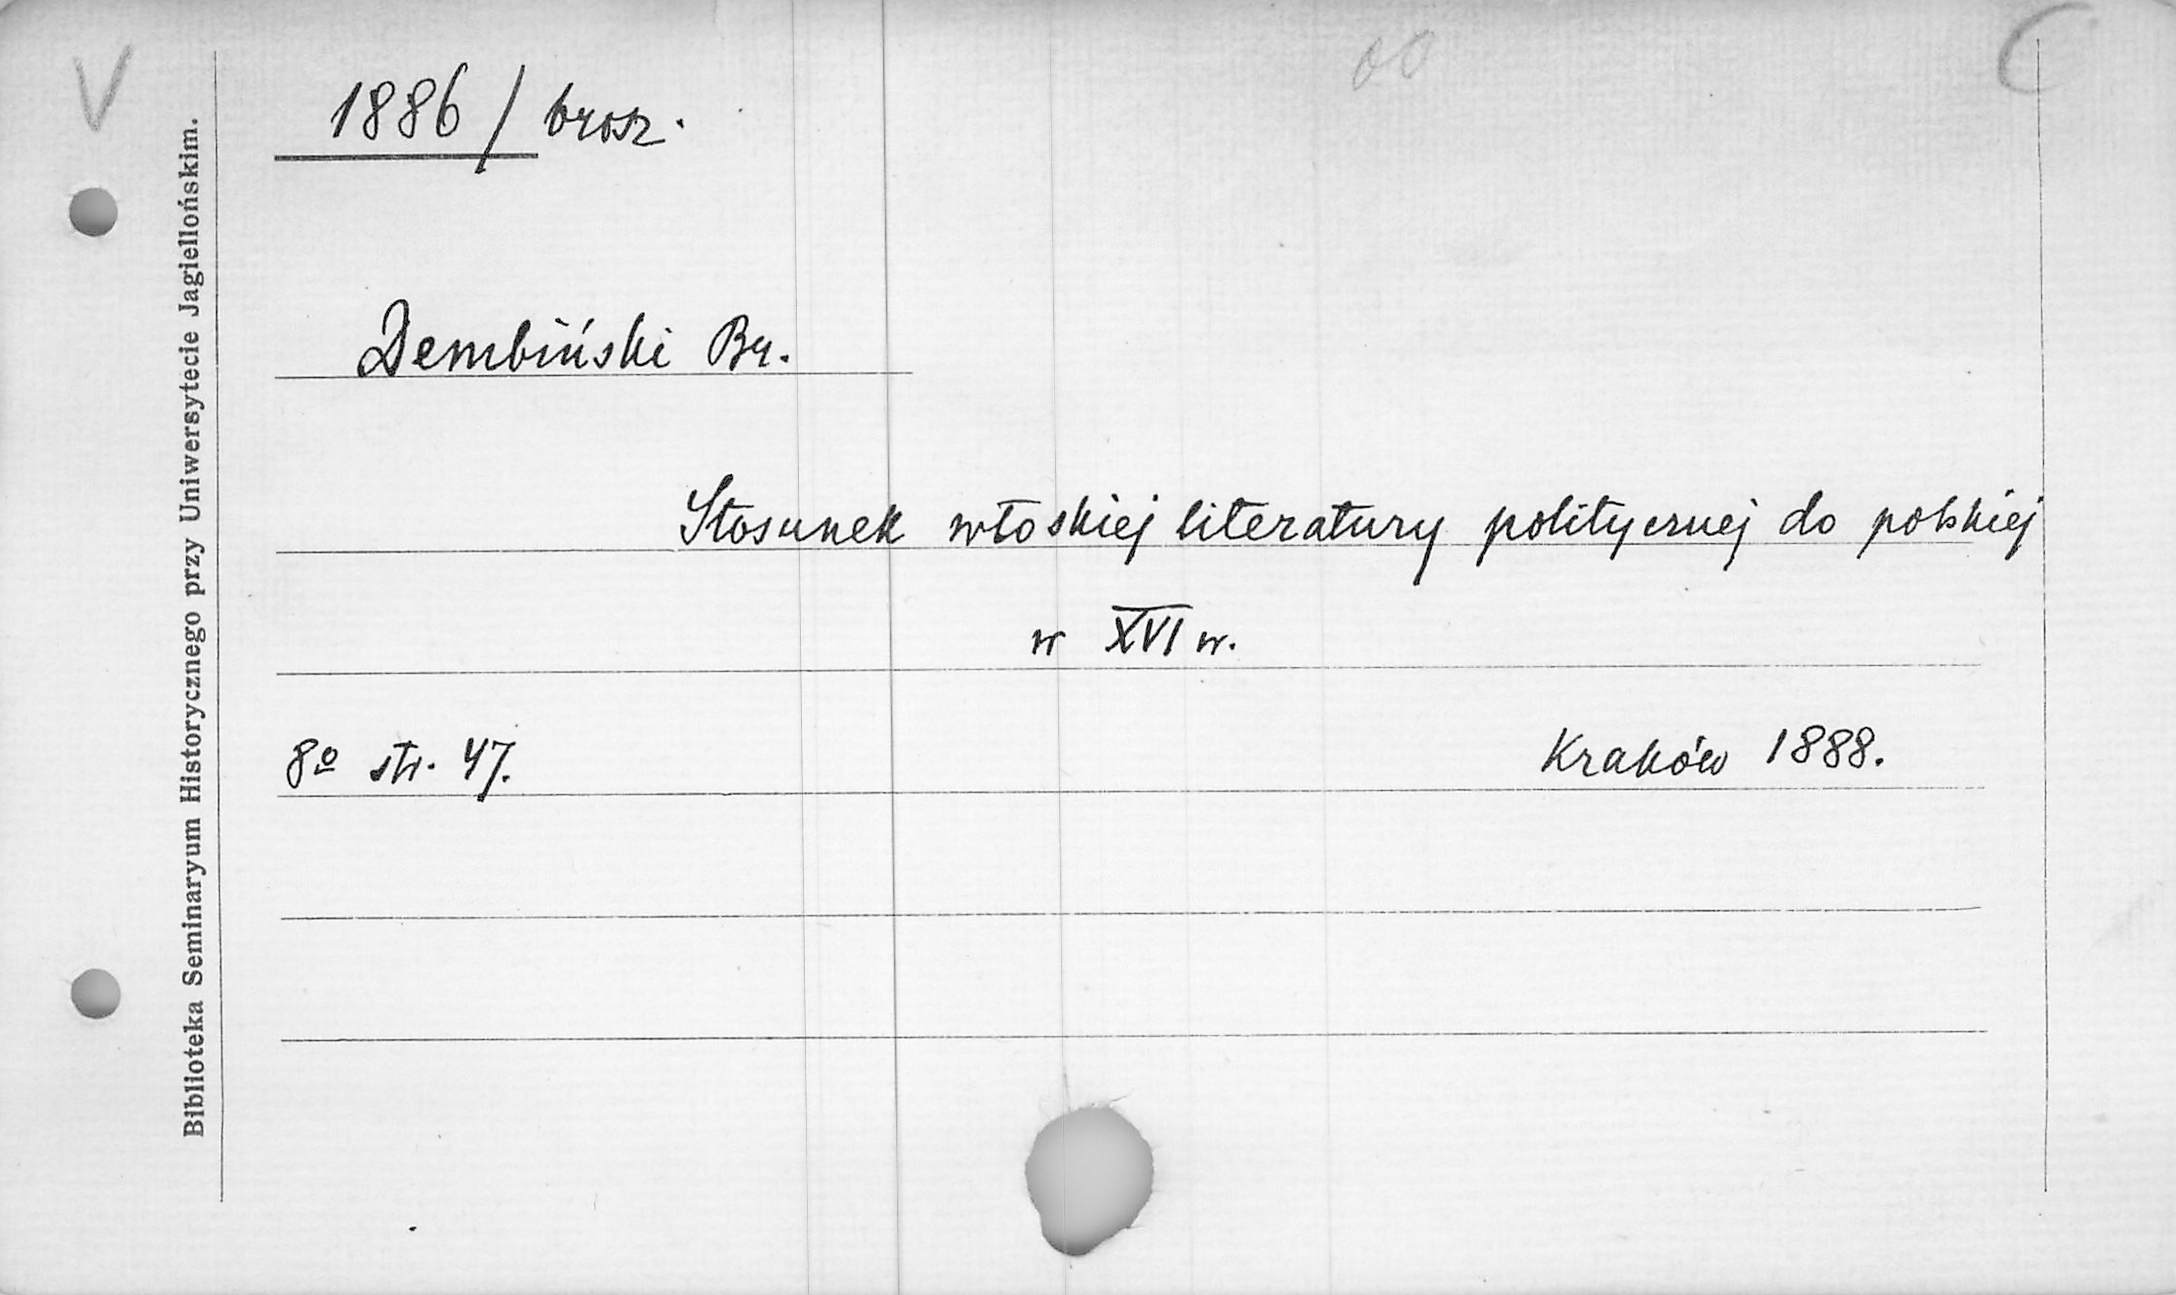 V
1886 / brosz.
Dembiński Br.
Stosunek włoskiej literatury politycznej do polskiej
w XVI w.
8º str. 47.
Kraków 1888.
Biblioteka Seminaryum Historycznego przy Uniwersytecie Jagiellońskim.